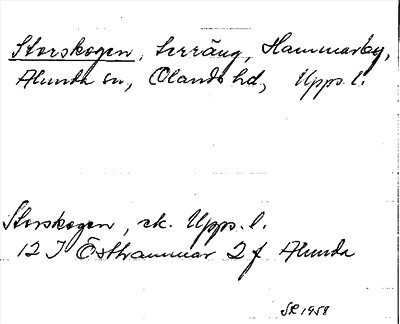 Storskogen, terräng, Hammarby,
Alunda sn, Olands hd, Upps. l.
Storskogen, sk. Upps. l.
12 I Östhammar 2 f Alunda
SR 1958